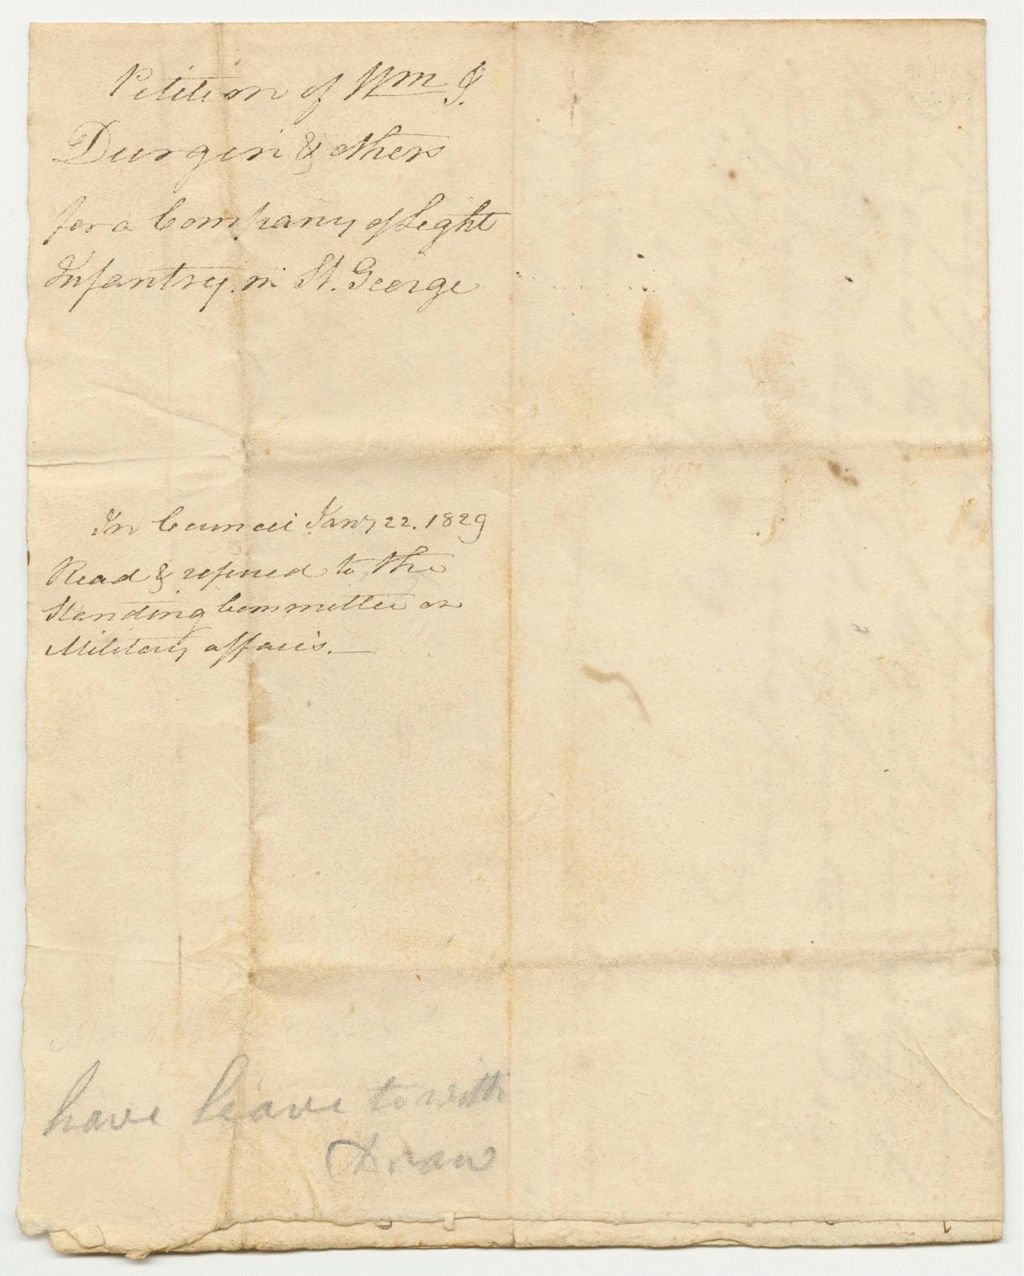 Petition of Wm J.
Durgin & others
for a Company of Light
Infantry in St. George
In Council Jany 22. 1829
Read & referred to the
Standing Committee on
Military affairs.
have leave to with
Draw